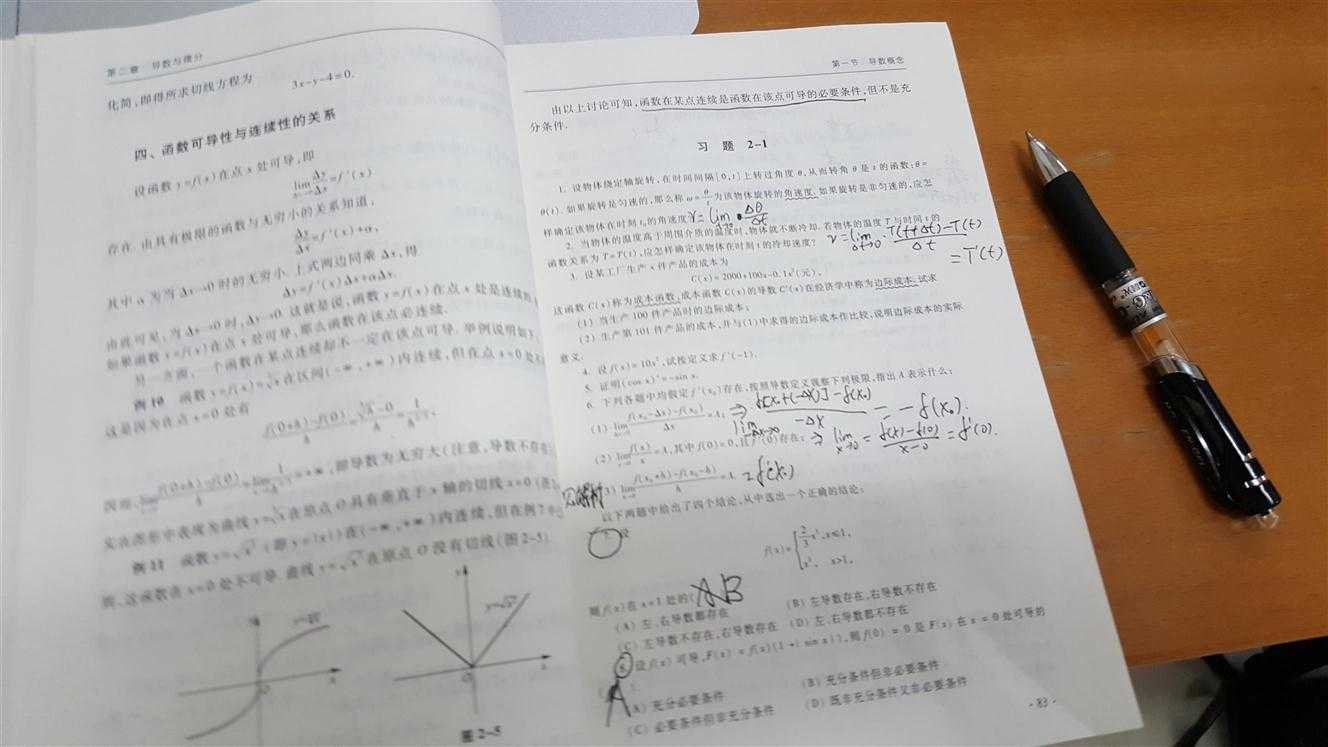 第二章 导数与微分
化简,即得所求切线方程为
3x-y-4=0.
四、函数可导性与连续性的关系
设函数 y=f(x)在点 x 处可导,即
lim Δy/Δx=f′(x)
存在.由具有极限的函数与无穷小的关系知道,
Δy/Δx=f′(x)+α,
其中 α 为当 Δx→0 时的无穷小.上式两边同乘 Δx,得
Δy=f′(x)Δx+αΔx.
由此可见,当 Δx→0 时,Δy→0.这就是说,函数 y=f(x)在点 x 处是连续的
如果函数 y=f(x)在点 x 处可导,那么函数在该点必连续.
另一方面,一个函数在某点连续却不一定在该点可导.举例说明如下
例10 函数 y=f(x)=∛x 在区间(-∞,+∞)内连续,但在点 x=0 处不
这是因为在点 x=0 处有
因而,
,即导数为无穷大(注意,导数不存在
实在图形中表现为曲线 y=∛x 在原点 O 具有垂直于 x 轴的切线 x=0
例11 函数 y=√x² (即 y=|x|)在(-∞,+∞)内连续,但在例7中
数在 x=0 处不可导.曲线 y=√x² 在原点 O 没有切线(图2-5).
y
y=∛x
O
x
y
y=√x²
O
x
图2-5
第一节 导数概念
由以上讨论可知,函数在某点连续是函数在该点可导的必要条件,但不是充
分条件.
习 题 2-1
1. 设物体绕定轴旋转,在时间间隔[0,t]上转过角度 θ,从而转角 θ 是 t 的函数:θ=
θ(t).如果旋转是匀速的,那么称 ω=θ/t 为该物体旋转的角速度.如果旋转是非匀速的,应怎
样确定该物体在时刻 t₀的角速度? V=lim Δθ/Δt
2. 当物体的温度高于周围介质的温度时,物体就不断冷却.若物体的温度 T 与时间 t 的
函数关系为 T=T(t),应怎样确定该物体在时刻 t 的冷却速度? v=lim Δt→0 T(t+Δt)-T(t)/Δt
=T′(t)
3. 设某工厂生产 x 件产品的成本为
C(x)=2000+100x-0.1x²(元),
该函数 C(x)称为成本函数,成本函数 C(x)的导数 C′(x)在经济学中称为边际成本.试求
(1) 当生产 100 件产品时的边际成本;
(2) 生产第 101 件产品的成本,并与(1)中求得的边际成本作比较,说明边际成本的实际
意义.
4. 设 f(x)=10x²,试按定义求 f′(-1).
5. 证明(cos x)′=-sin x.
6. 下列各题中均假定 f′(x₀)存在,按照导数定义观察下列极限,指出 A 表示什么:
(1) lim f(x₀-Δx)-f(x₀)/Δx=A; ⇒ lim -Δx→0 f[x₀+(-Δx)]-f(x₀)/-Δx = -f(x₀).
(2) lim f(x)/x=A,其中 f(0)=0,且 f′(0)存在; ⇒ lim x→0 = f(x)-f(0)/x-0 = f′(0).
(3) lim f(x₀+h)-f(x₀-h)/h=A. 2f′(x₀)
以下两题中给出了四个结论,从中选出一个正确的结论:
7. 设
f(x)={2/3 x³, x≤1,
x², x>1,
则 f(x)在 x=1 处的( AB
(A) 左、右导数都存在 (B) 左导数存在,右导数不存在
(C) 左导数不存在,右导数存在 (D) 左、右导数都不存在
8. 设 f(x) 可导,F(x) = f(x)(1+|sin x|),则 f(0) = 0 是 F(x) 在 x = 0 处可导的
A
(A) 充分必要条件 (B) 充分条件但非必要条件
(C) 必要条件但非充分条件 (D) 既非充分条件又非必要条件
· 83 ·